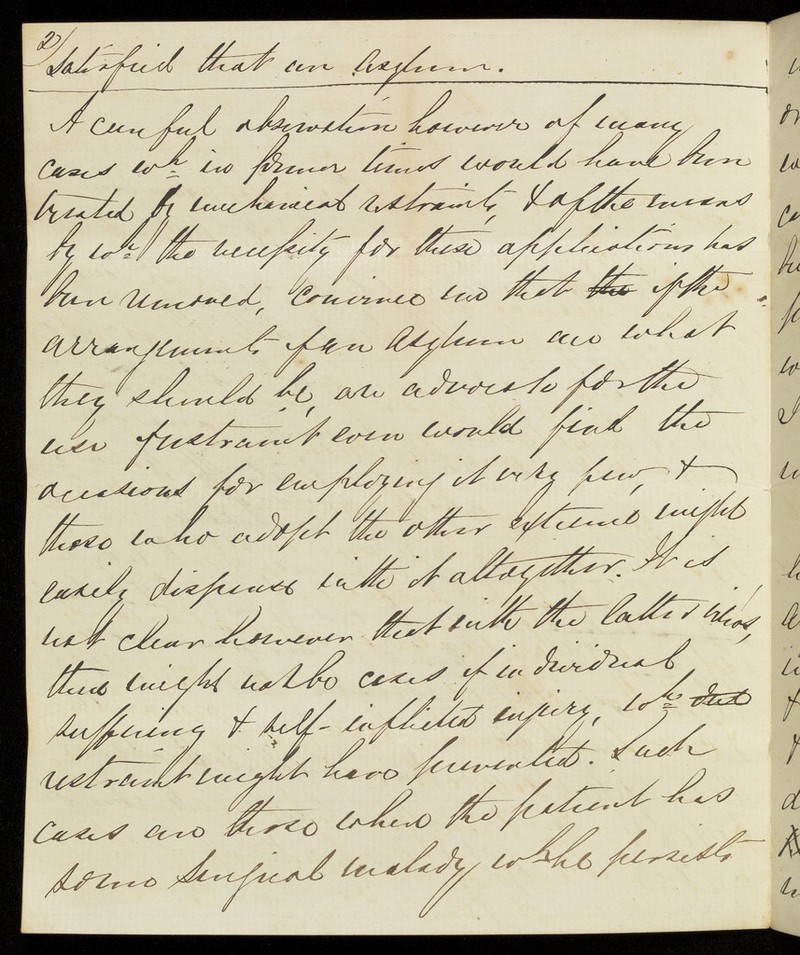 2/
satisfied that an asylum.
A careful observation however of many
cases wh. in former times would have been
treated by mechanical restraints, & of the means
by wh. the necessity for these applications has
been removed, convince me that the if the
arrangements of an asylum are what
they should be, an advocate for the
use of restraint even would find the
occasions for employing it very few, &
those who adopt the other extreme might
easily dispense with it altogether. It is
not clear however that with the latter views,
there might not be cases of individual
suffering & self-inflicted injury, wh.
restraint might have prevented. Such
cases are those where the patient has
some surgical malady wh. he persists